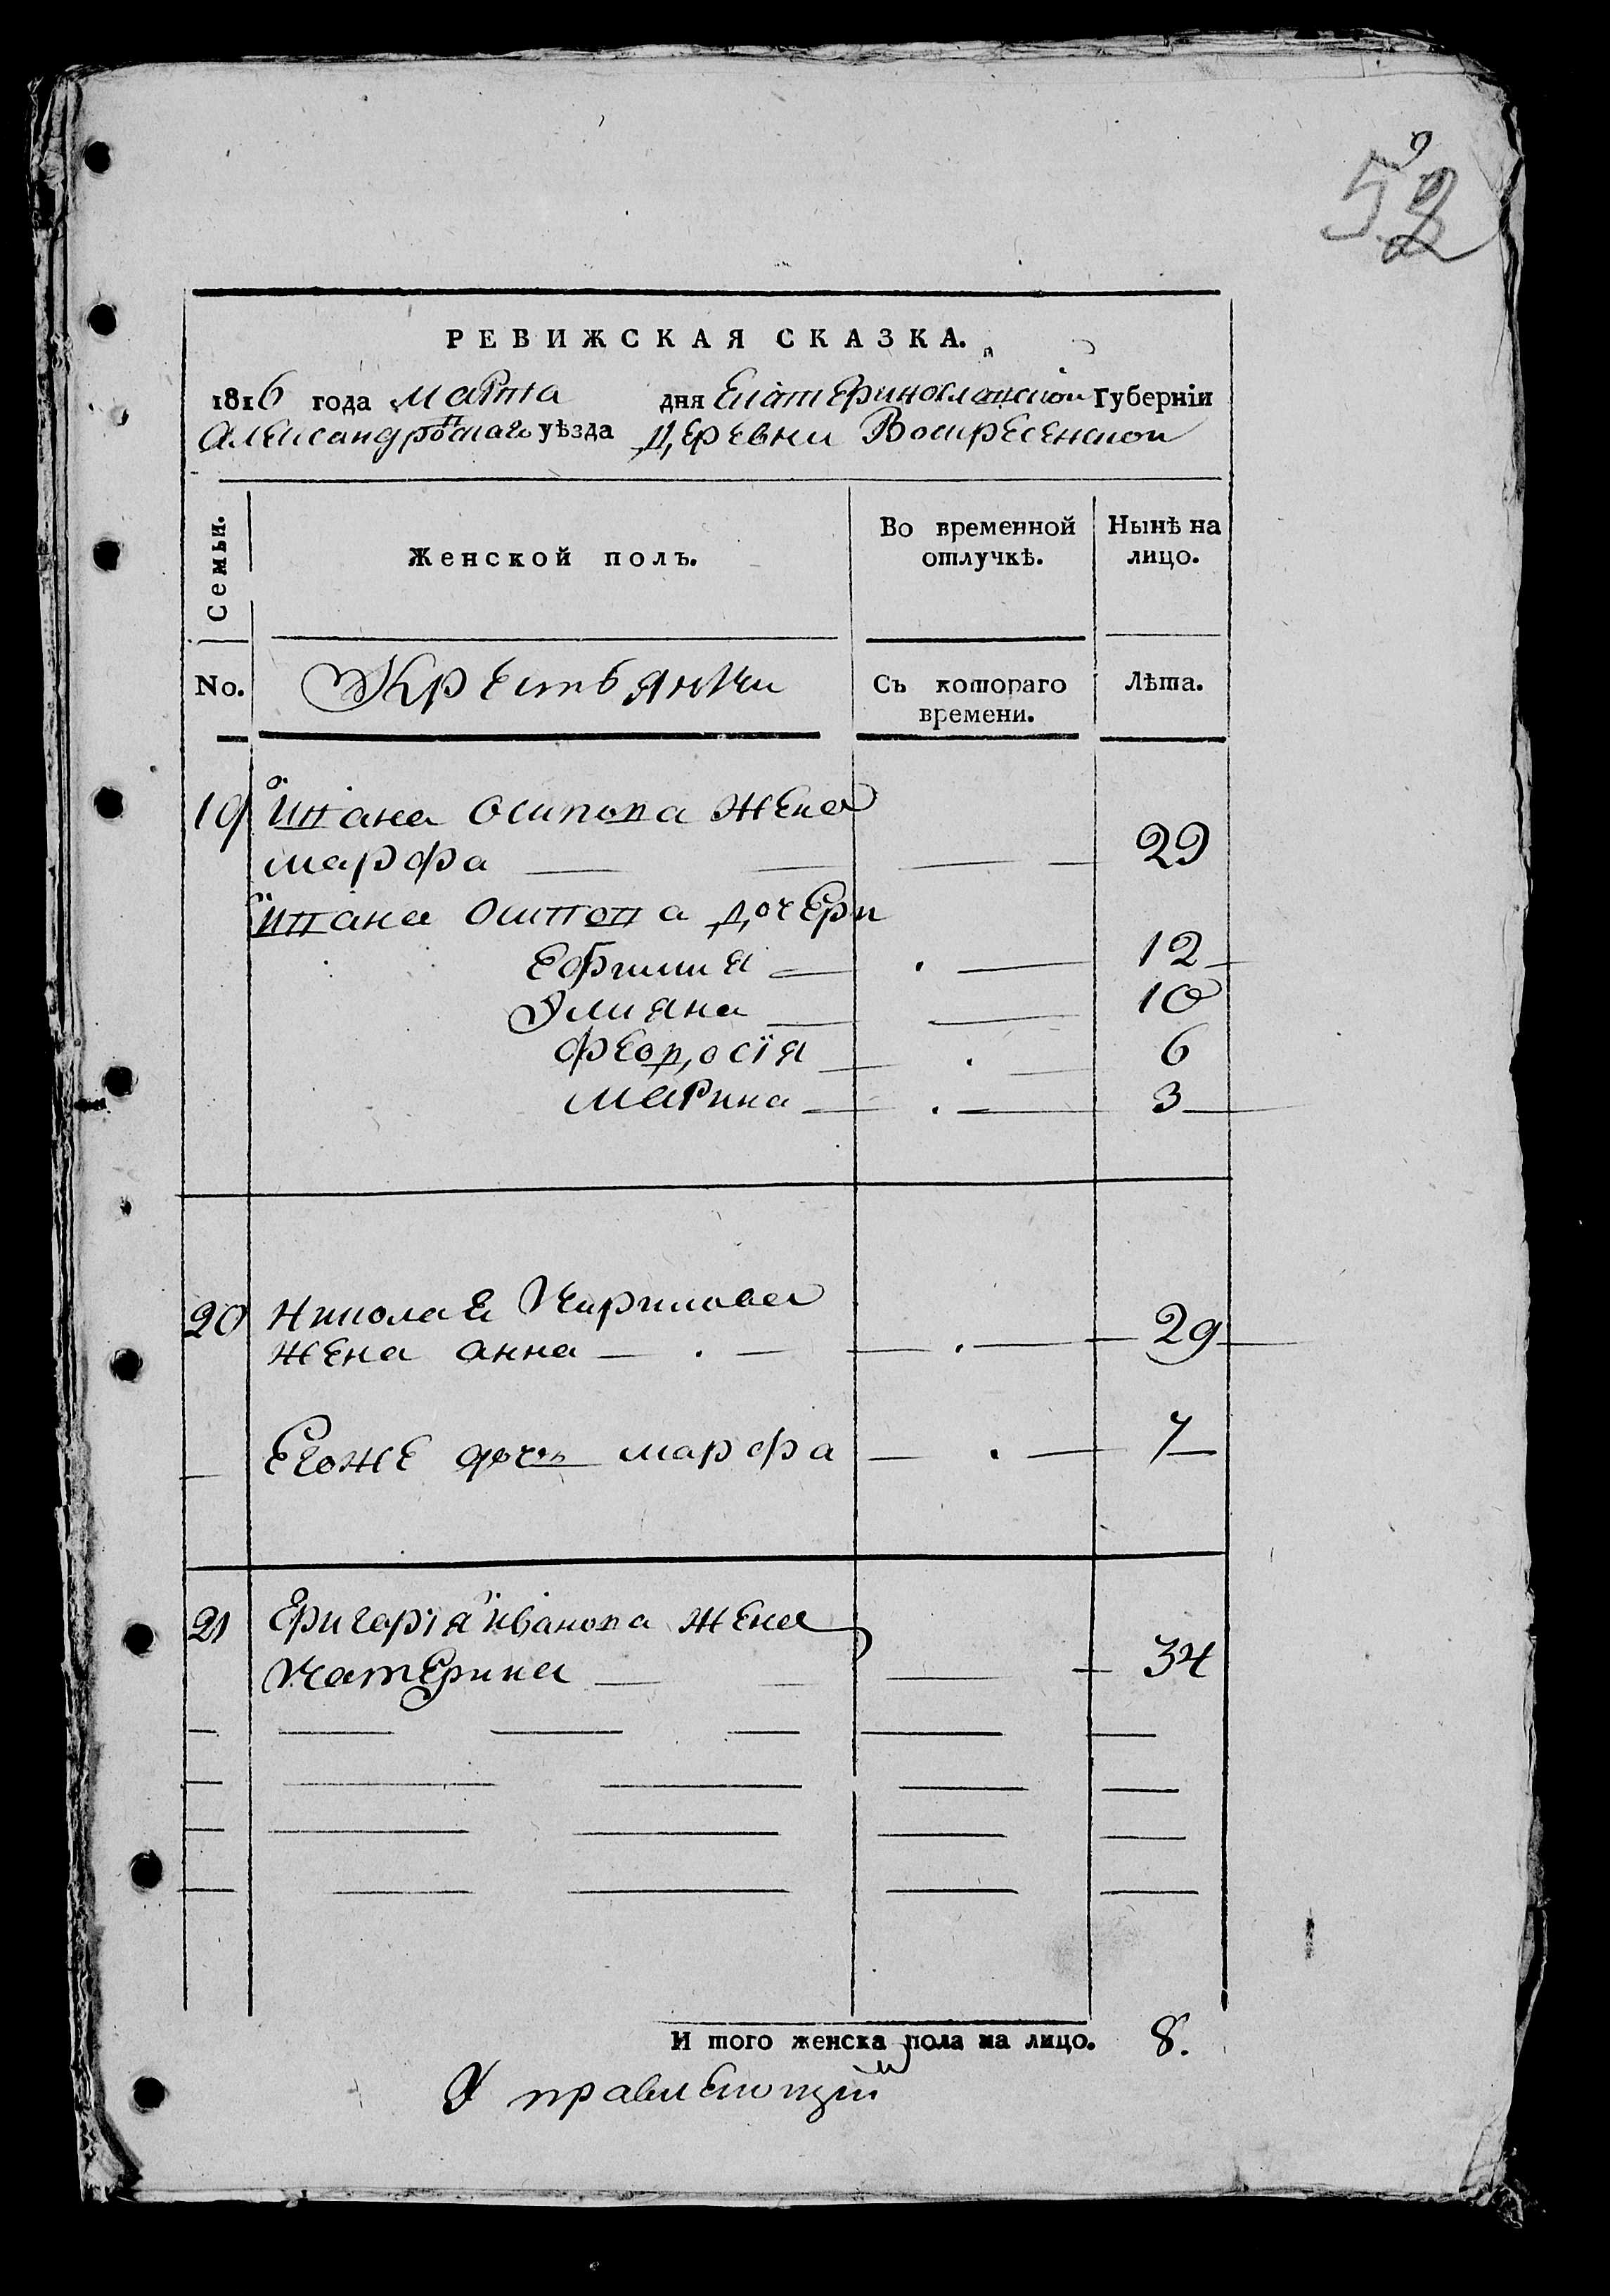 52
РЕВИЖСКАЯ СКАЗКА.
1816 года марта дня Екатеринославской Губерніи
Александровскаго уѣзда Деревни Воскресенской
Семьи.
Женской полъ.
Во временной отлучкѣ.
Нынѣ на лицо.
No.
Крестьянки
Съ котораго времени.
Лѣта.
19 Ивана Осипова жена
марфа — 29
Ивана Осипова дочери
Ефимия — 12
Улияна — 10
Феодосїя — 6
Марина — 3
20 Николая Кирилова
жена анна — 29
Егоже дочь марфа — 7
21 Григорїя Иванова жена
Катерина — 34
И того женска пола на лицо. 8.
Управляющий